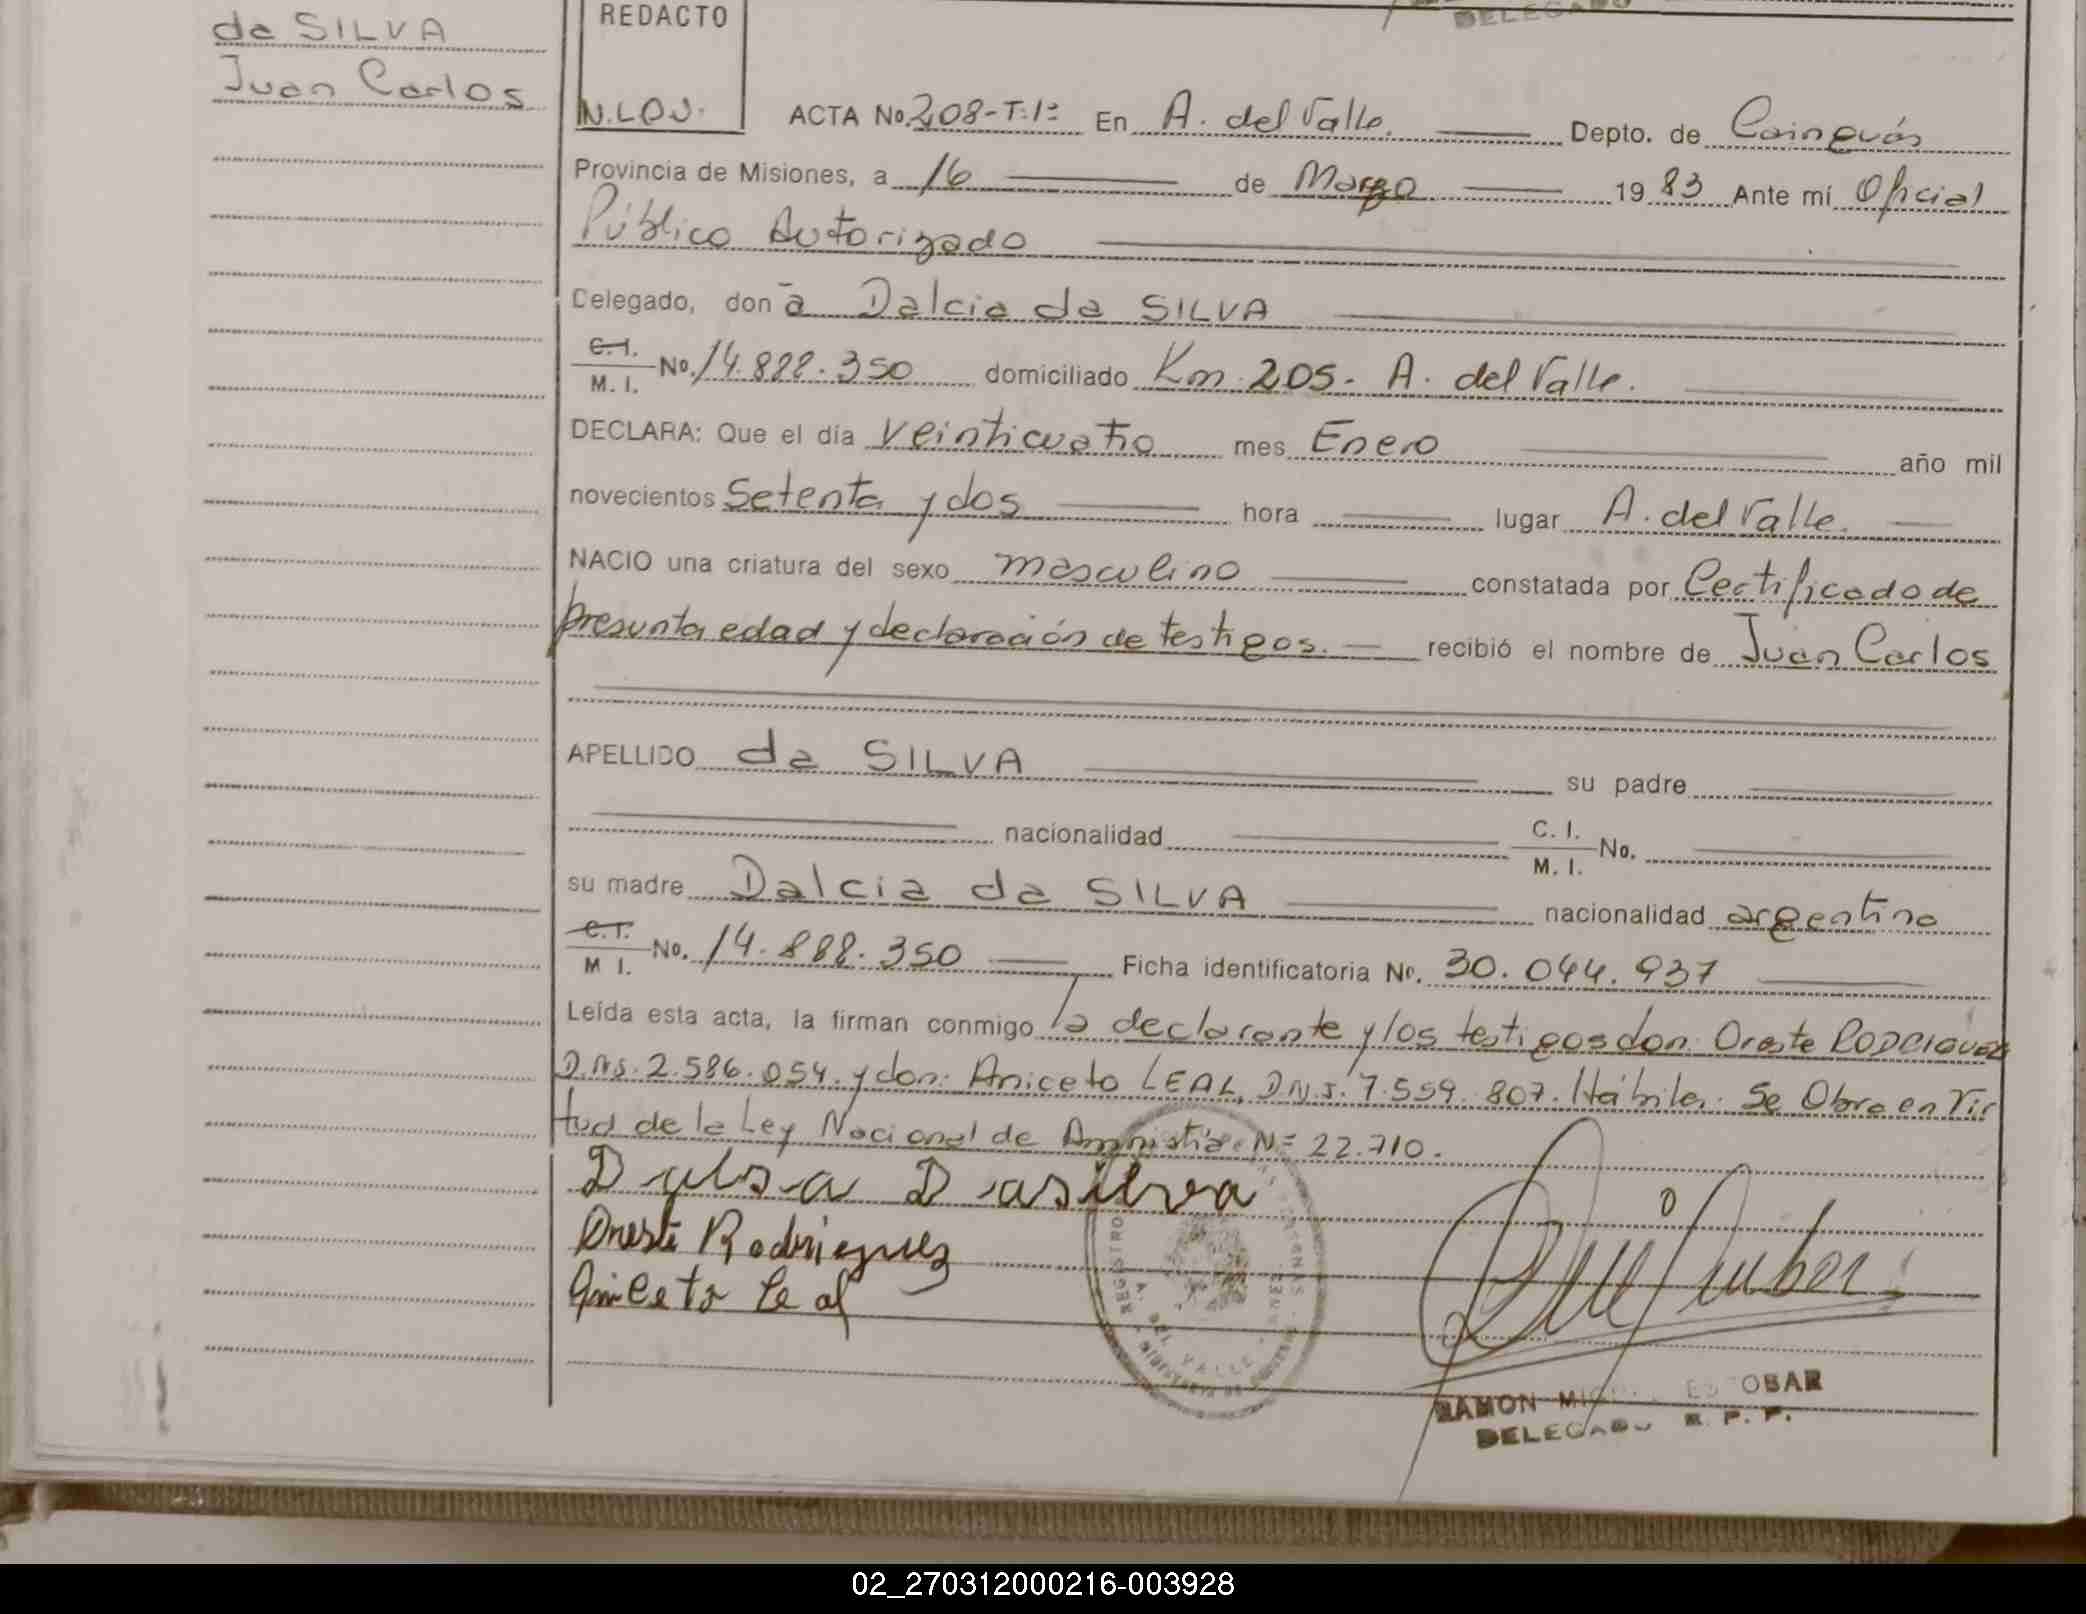 de SILVA
Juan Carlos
REDACTO
DELEGADO
N.LOJ.
ACTA No. 208-T:1º En A. del Valle. Depto. de Cainguás
Provincia de Misiones, a 16 de Marzo 19 83 Ante mí Oficial
Público Autorizado
Delegado, don a Dalcia da SILVA
C.I.
M. I. No. 14.888.350 domiciliado Km 205. A. del Valle.
DECLARA: Que el día veinticuatro mes Enero año mil
novecientos Setenta y dos hora lugar A. del Valle.
NACIO una criatura del sexo masculino constatada por Certificado de
presunta edad y declaración de testigos. recibió el nombre de Juan Carlos
APELLIDO da SILVA su padre
nacionalidad C. I.
M. I. No.
su madre Dalcia da SILVA nacionalidad argentina
C.I.
M I. No. 14.888.350 Ficha identificatoria No. 30.044.937
Leída esta acta, la firman conmigo la declarante y los testigos don: Oreste RODRIGUEZ
D.N.I. 2.586.054. y don: Aniceto LEAL, D.N.I. 7.559.807. Hábiles. Se Obra en Vir
tud de la Ley Nacional de Amnistía Nº 22.710.
Dulsa Dasilva
Oreste Rodriguez
Aniceto Leal
REGISTRO
A. DEL VALLE
RAMON MIGUEL ESCOBAR
DELEGADO R. P. P.
02_270312000216-003928